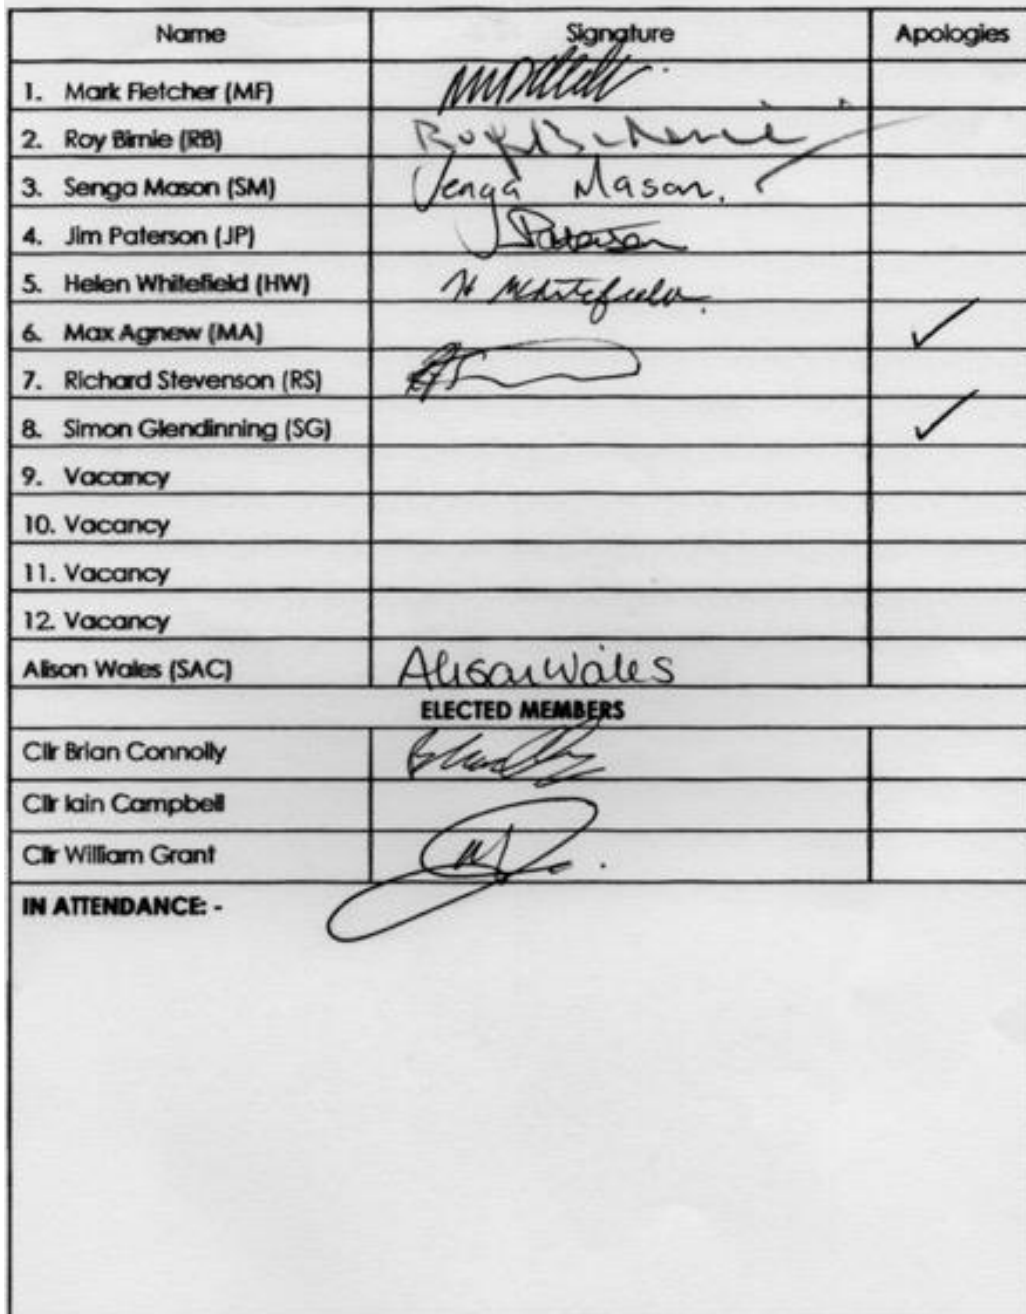 Name Signature Apologies
1. Mark Fletcher (MF)
2. Roy Birnie (RB)
3. Senga Mason (SM) Senga Mason.
4. Jim Paterson (JP) J Paterson
5. Helen Whitefield (HW) H Whitefield.
6. Max Agnew (MA) ✓
7. Richard Stevenson (RS)
8. Simon Glendinning (SG) ✓
9. Vacancy
10. Vacancy
11. Vacancy
12. Vacancy
Alison Wales (SAC) Alison Wales
ELECTED MEMBERS
Cllr Brian Connolly
Cllr Iain Campbell
Cllr William Grant
IN ATTENDANCE: -